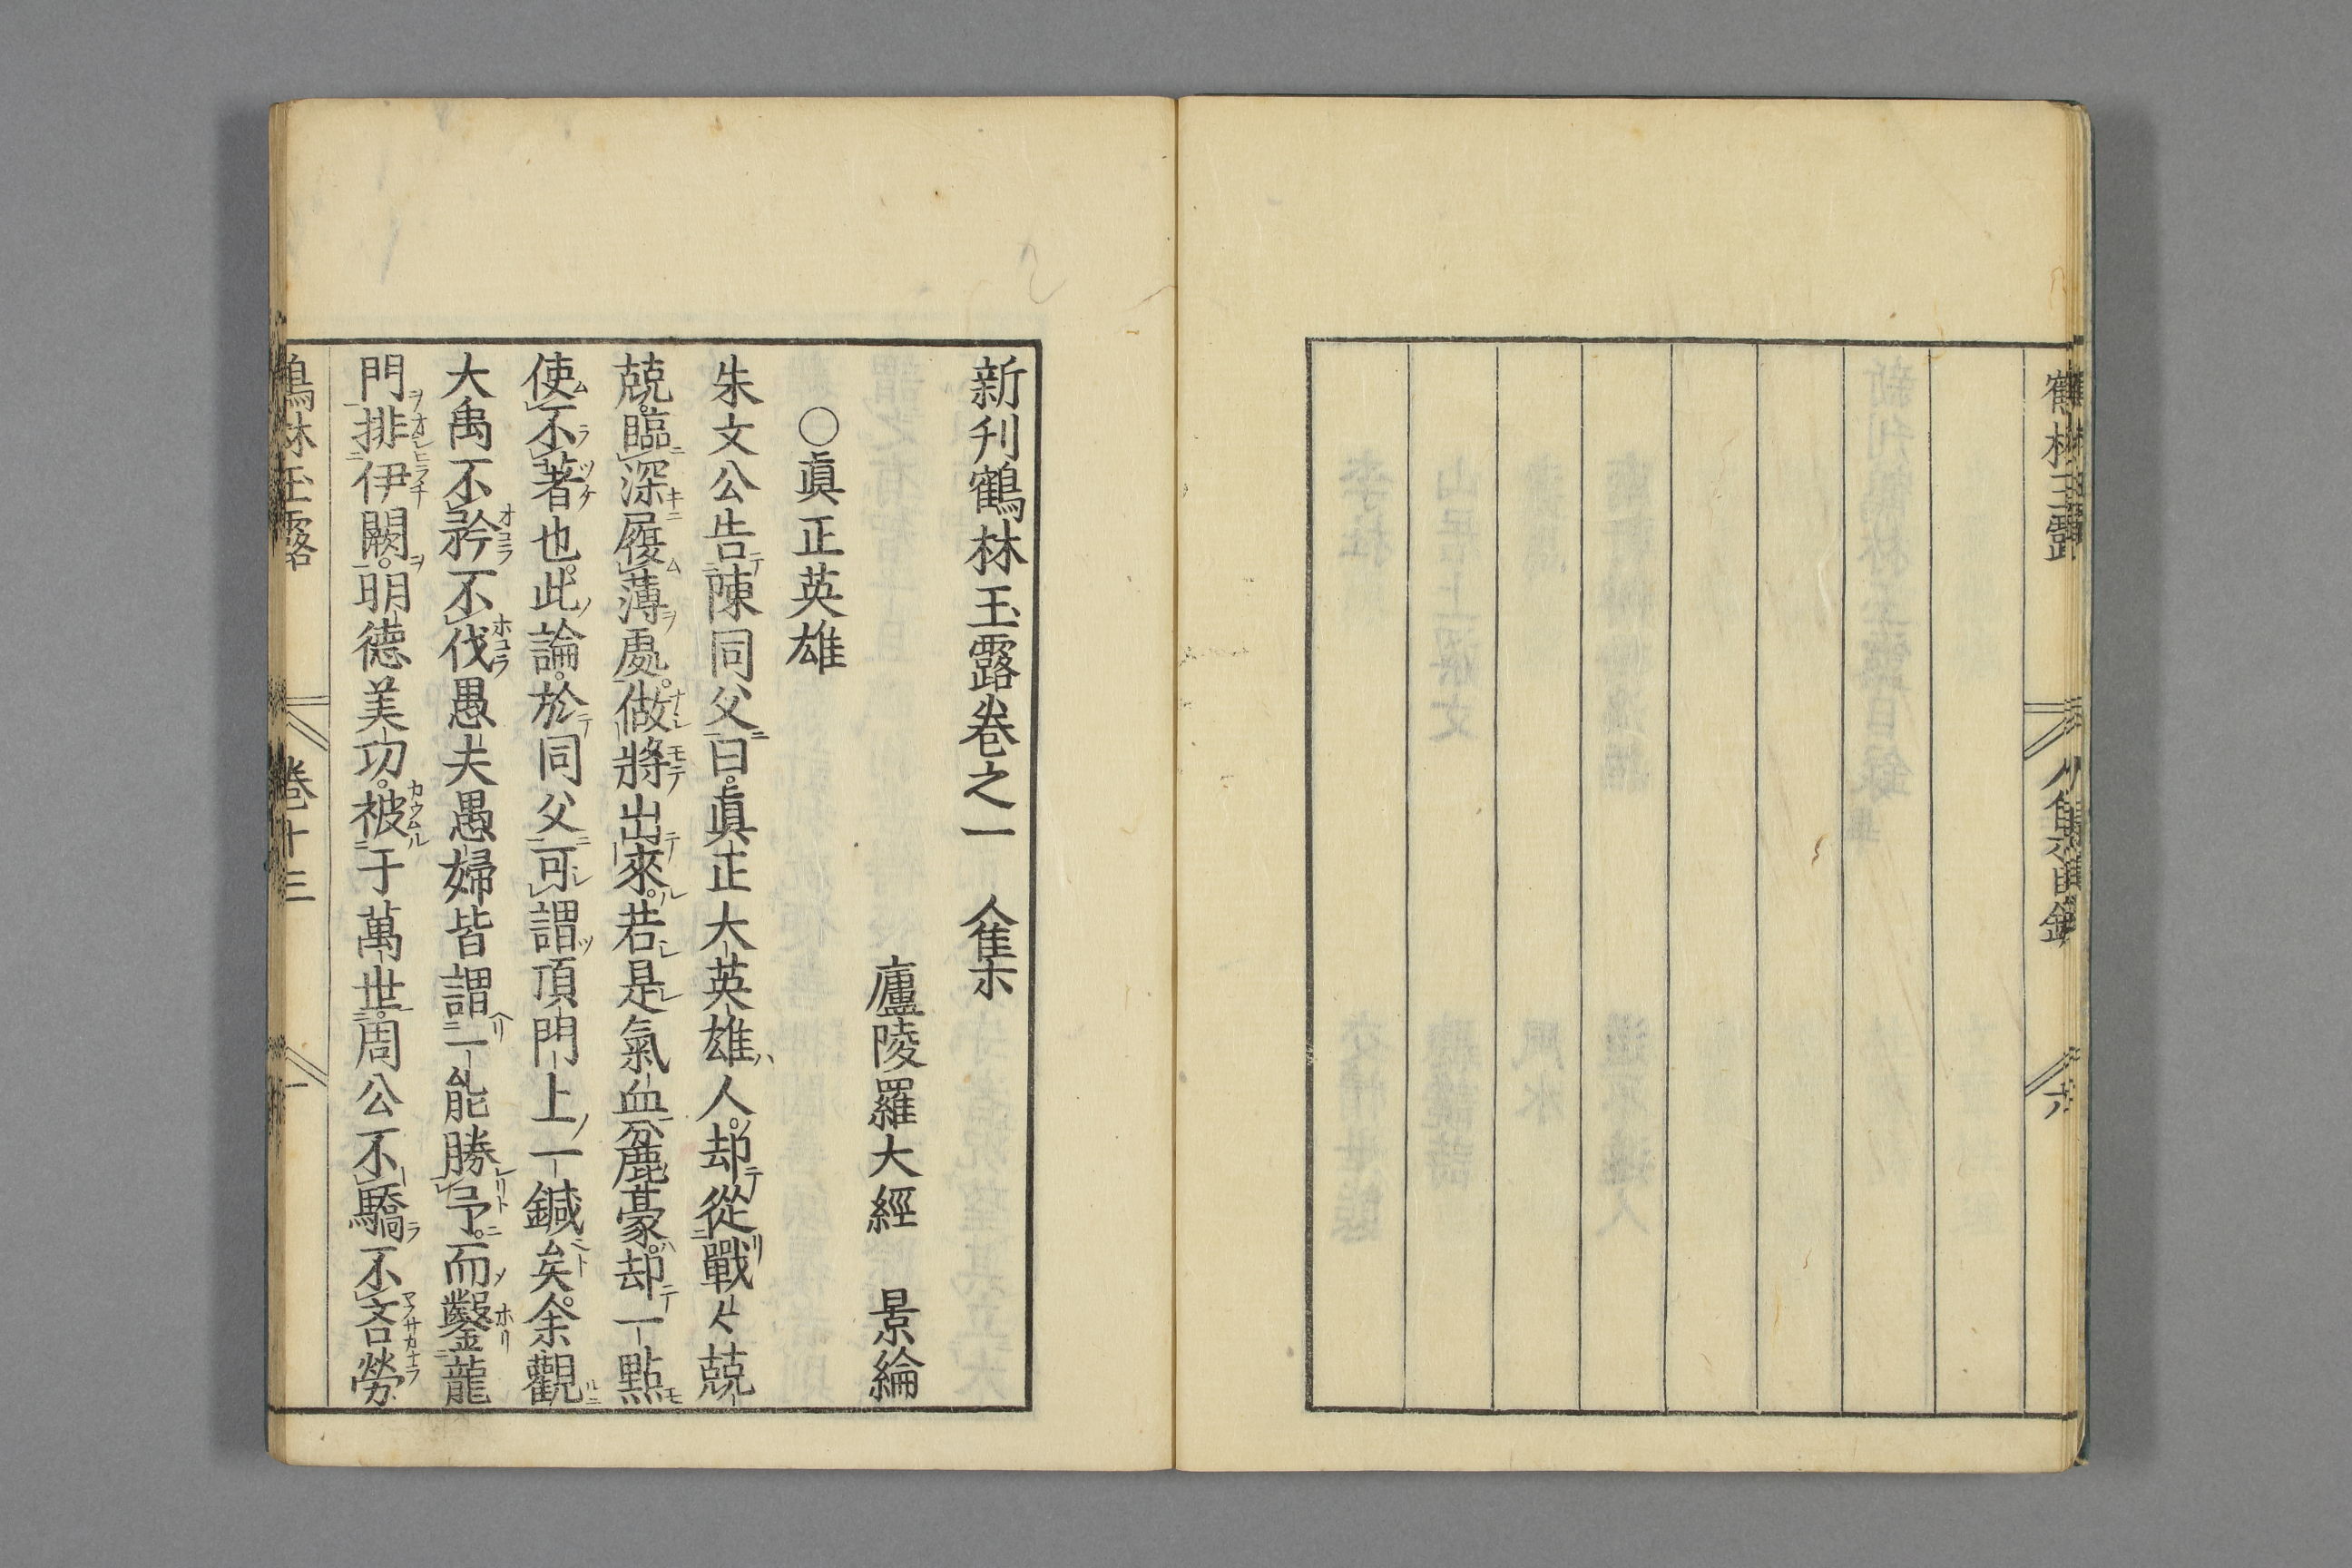 鶴林玉露
人集目錄
六
新刊鶴林玉露卷之一 人集
廬陵羅大經 景綸
○眞正英雄
朱文公告陳同父曰。眞正大英雄人。却從戰〻兢
兢。臨深履薄處。做將出來。若是氣血麄豪。却一點
使不著也。此論。於同父可謂頂門上一鍼矣。余觀
大禹不矜不伐愚夫愚婦皆謂一能勝予。而鑿龍
門排伊闕。明德美功。被于萬世。周公不驕不吝勞
鶴林玉露
卷十三
一